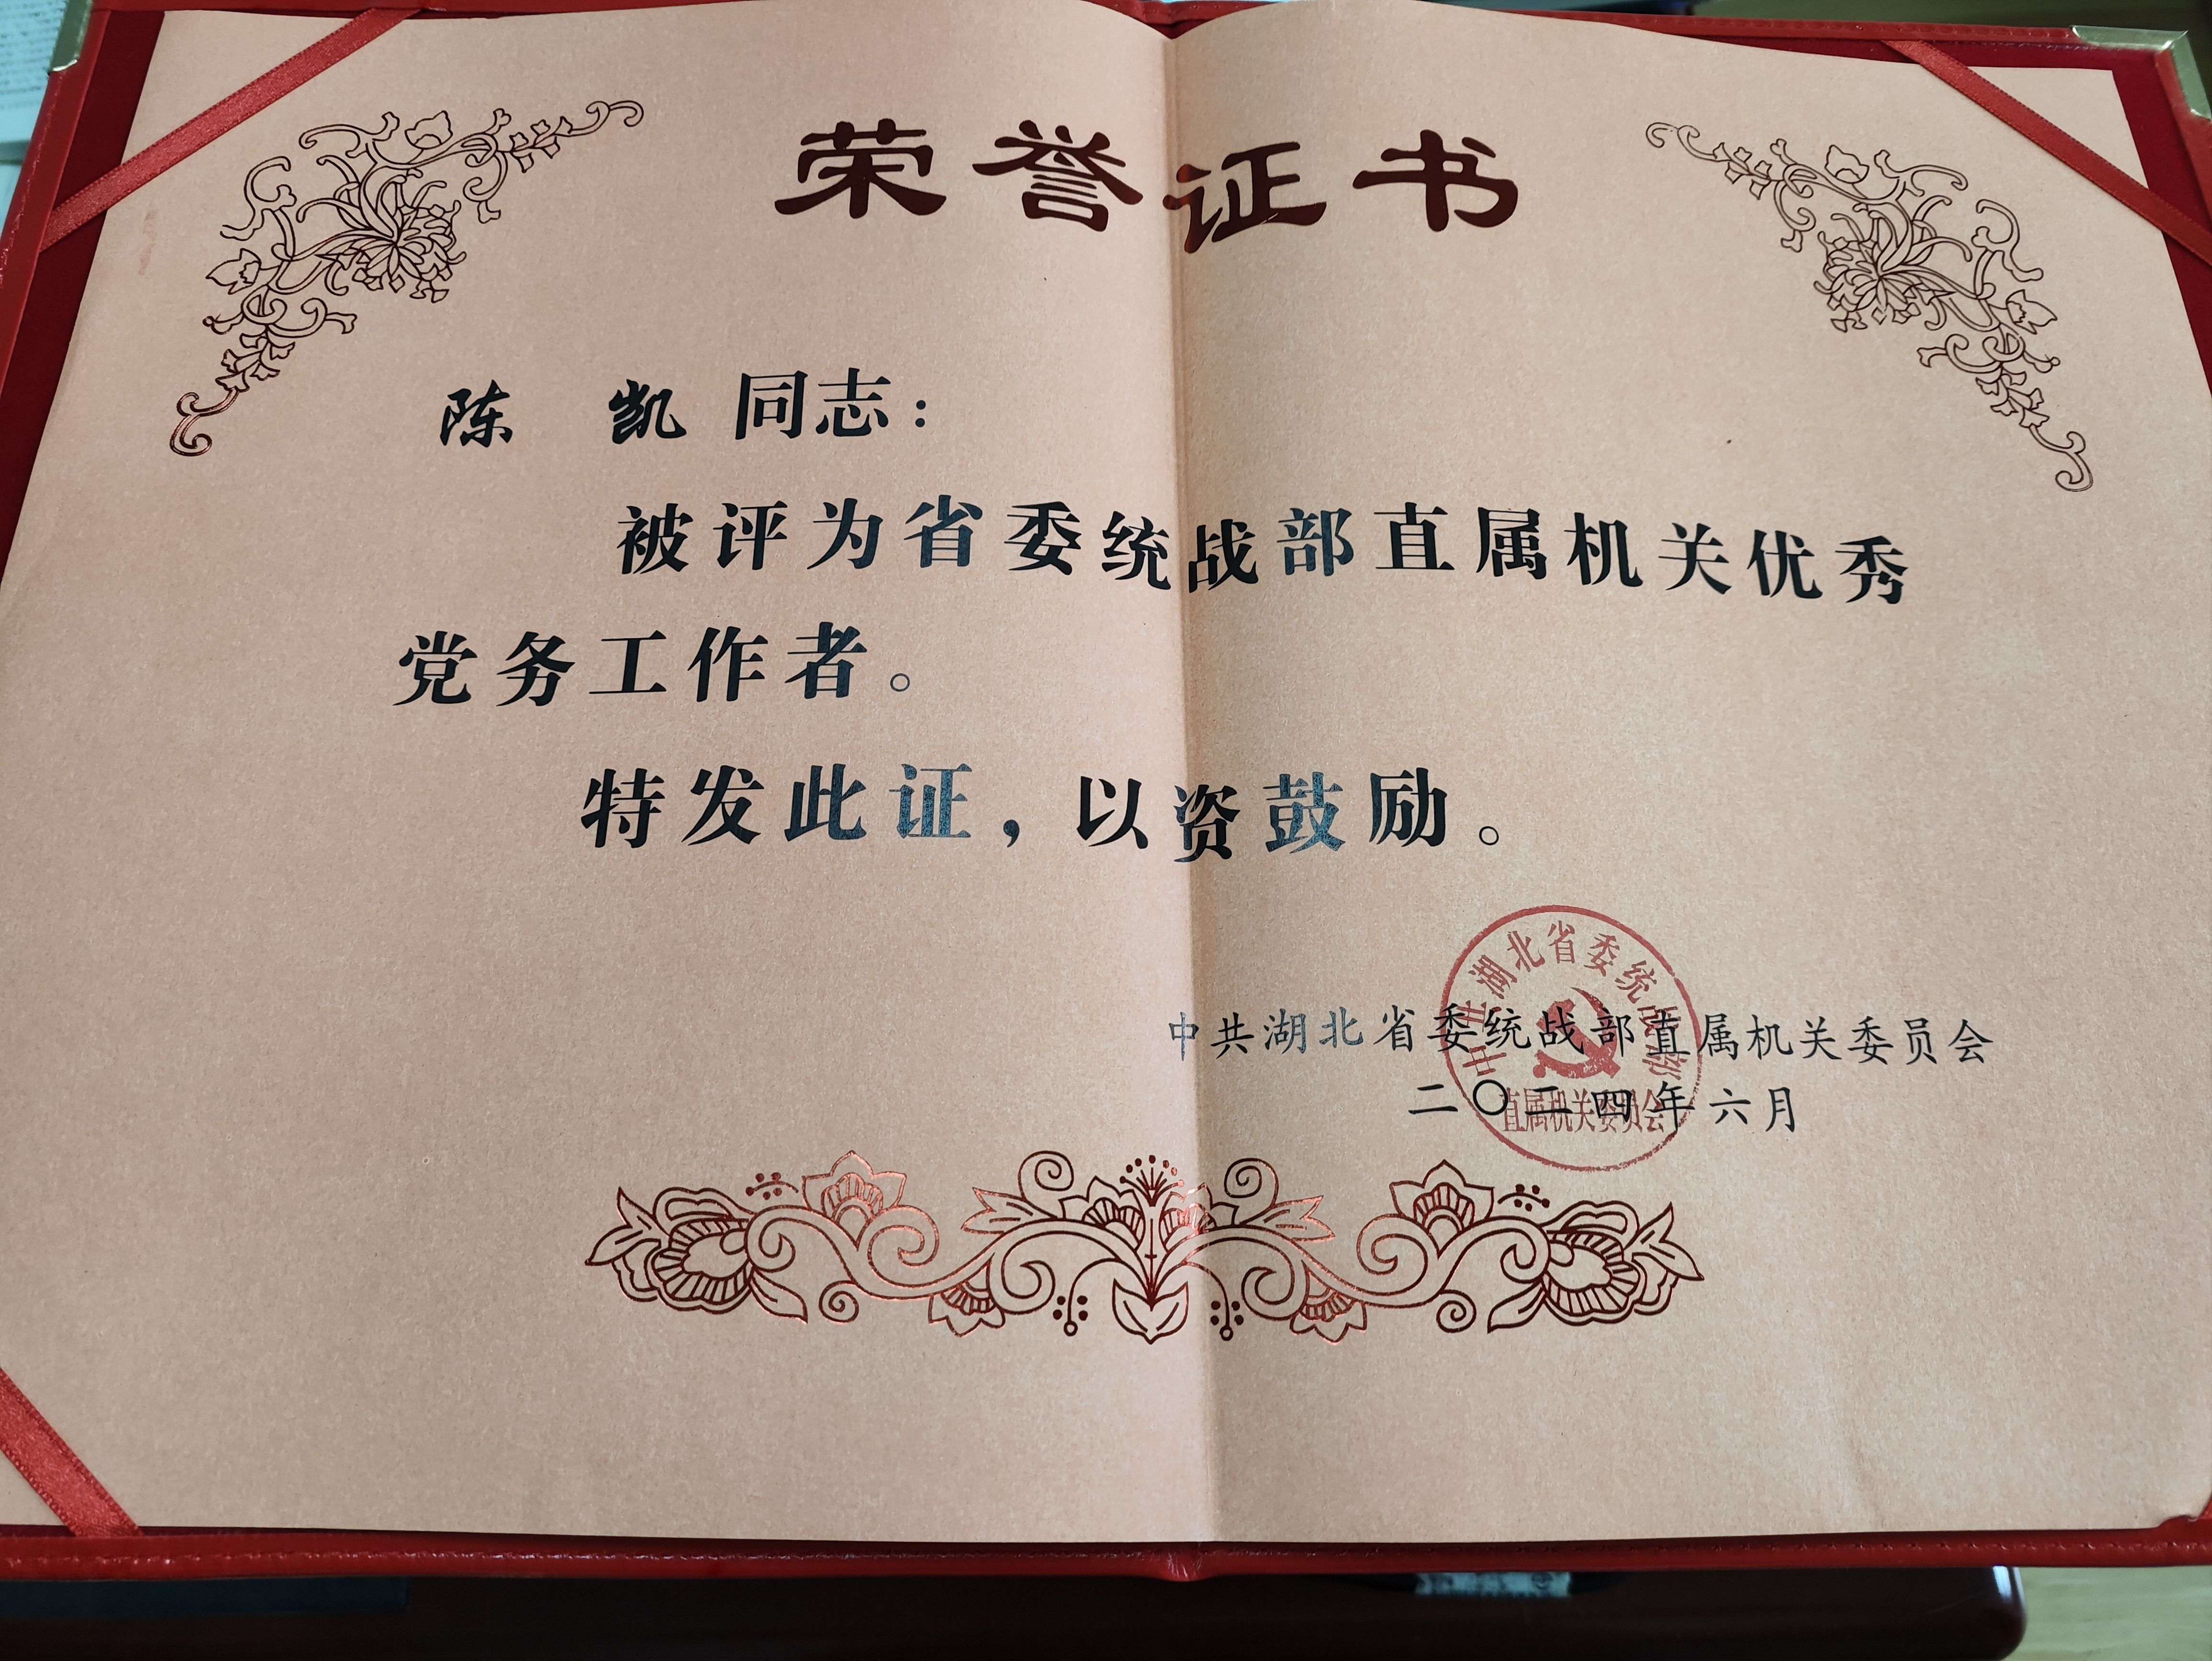 荣誉证书
陈 凯 同志：
被评为省委统战部直属机关优秀
党务工作者。
特发此证，以资鼓励。
中共湖北省委统战部直属机关委员会
二〇二四年六月
中共湖北省委统战部
直属机关委员会